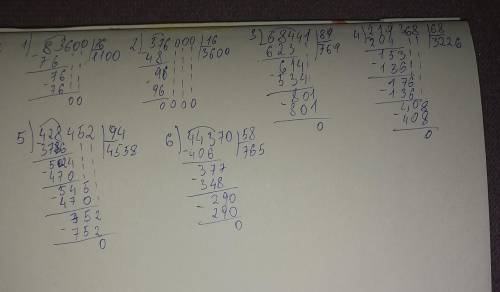 1) 83600 | 76
-76 1100
76
-76
00
2) 576000 | 16
-48 3600
96
-96
0000
3) 68441 | 89
-623 769
614
-534
801
-801
0
4) 219368 | 68
-204 3226
153
-136
176
-136
408
-408
0
5) 428452 | 94
-376 4558
524
-470
545
-470
752
-752
0
6) 44370 | 58
-406 765
377
-348
290
-290
0